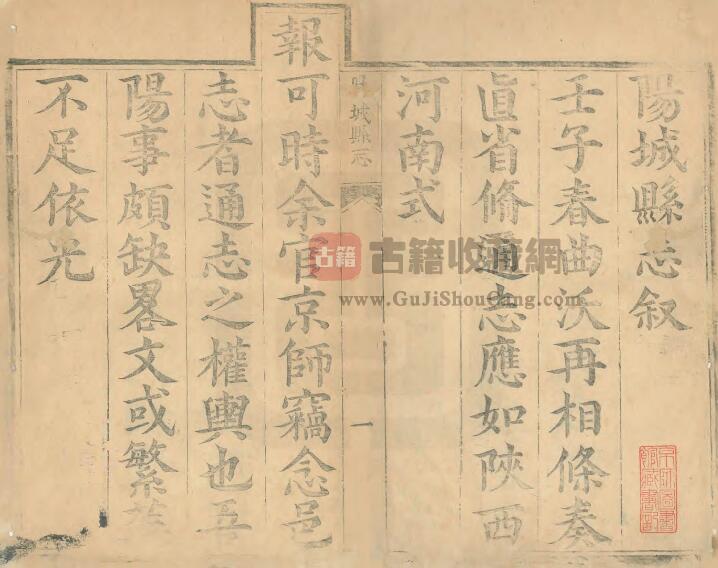 陽城縣志叙
壬子春曲沃再相條奏
直省脩通志應如陝西
河南式
城縣志
一
報可時余官京師竊念邑
志者通志之權輿也吾
陽事頗缺畧文或繁
不足依光
古籍 古籍收藏網
www.GuJiShouCang.com
京師圖書
館藏書記